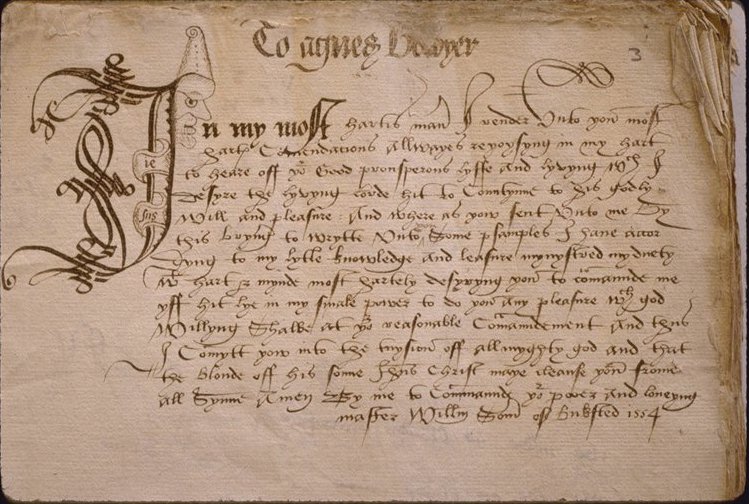 To agnes Bowyer
3
In my most hartis man I render Unto yow most
harty Comendations allwayes reioysyng in my hart
to heare off yor Good prosperous lyffe and lyvyng wch I
desyre the lyvyng lorde hit to Contynue to his godly
Will and pleasure : And where as yow sent Unto me By
this bryng to wrytte Unto yow Some psamples I have accor
dyng to my lytle knowledge and leasure mynystred my duety
wt hart & mynde most hartely desyryng yow to comaunde me
yff hit lye in my smale power to do yow any pleasure wch god
Willyng Shalbe at yor reasonable Comaundement And thus
I Comytt yow into the tuysion off allmyghty god and that
the bloude off his sonne Jhus Christ maye cleanse yow frome
all Synne Amen By me to Commaunde yor power and loveyng
master Willm Some off Buksted 1554
ie
sus